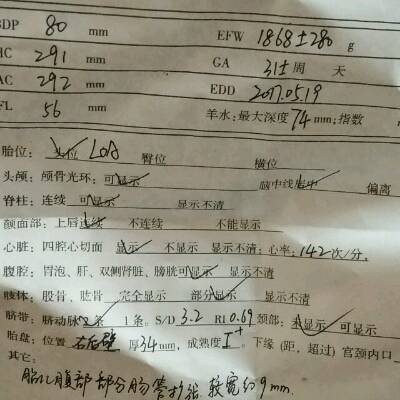 BDP 80 mm EFW 1868±280 g
HC 291 mm GA 31± 周 天
AC 292 mm EDD 2017.05.19
FL 56 mm 羊水:最大深度74mm;指数
胎位: 头位 LOA 臀位 横位
头颅: 颅骨光环: 可显示 脑中线居中 偏离
脊柱: 连续 可显示 显示不清
颜面部: 上唇连续 不连续 不能显示
心脏: 四腔心切面 显示 不显示 显示不清; 心率: 142次/分。
腹腔: 胃泡、肝、双侧肾脏、膀胱可显示 显示不清
肢体: 股骨、肱骨 完全显示 部分显示 显示不清
脐带: 脐动脉2条 1条。S/D 3.2 RI 0.69 颈部: 未显示 可显示
胎盘: 位置 右后壁 厚34mm, 成熟度 I+ 。下缘 (距, 超过) 宫颈内口
其它:
胎儿腹部部分肠管扩张 较宽约9mm